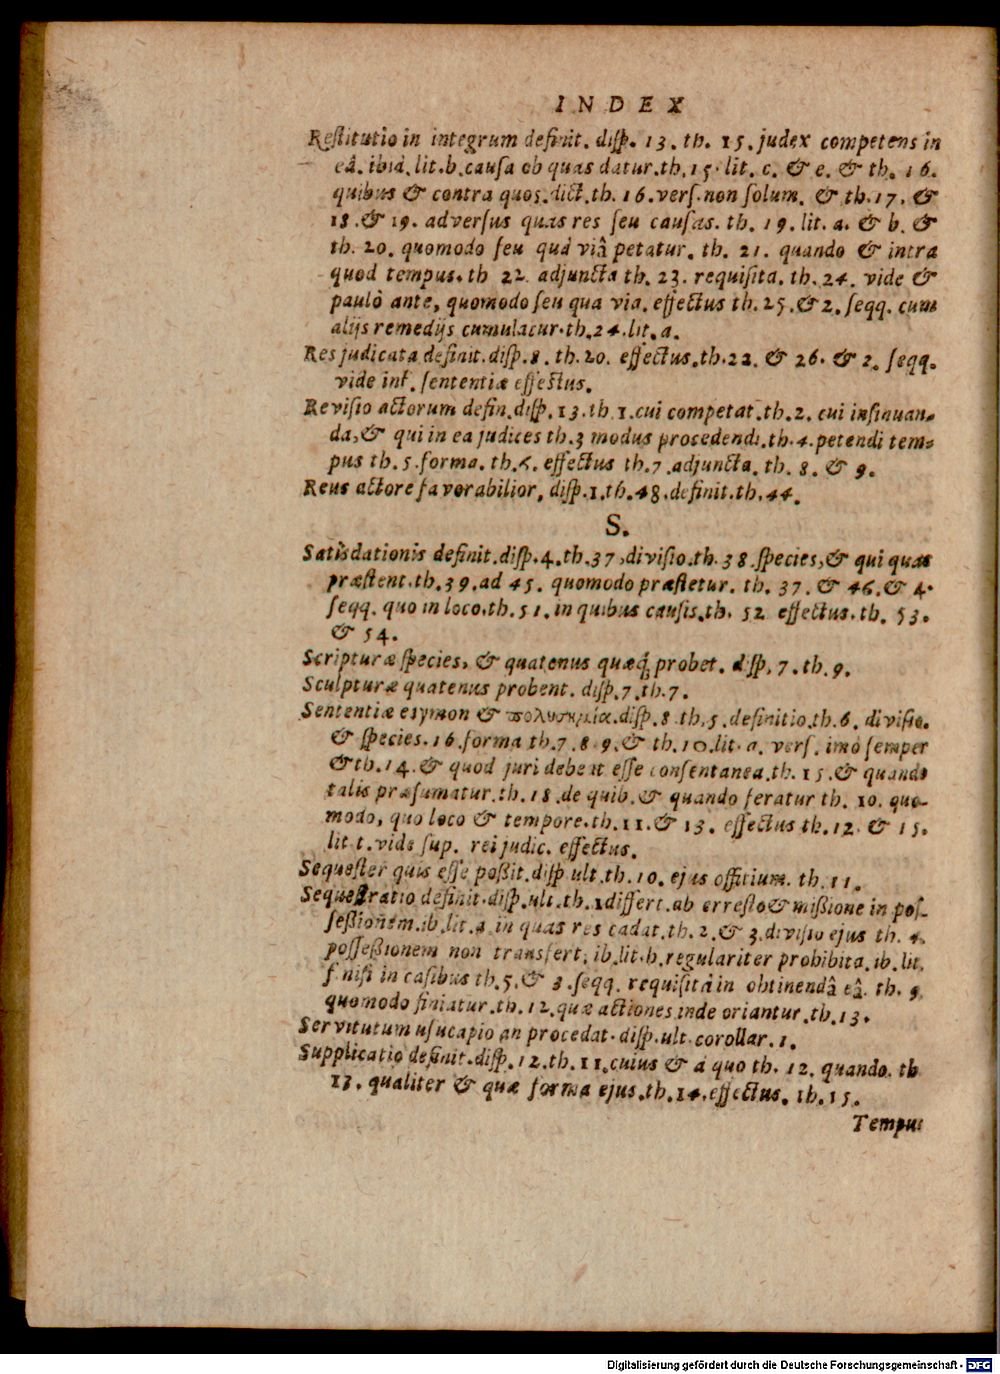 INDEX
Reſtitutio in integrum definit. diſp. 13. th. 15. judex competens in
eâ. ibid. lit. b. cauſa ob quas datur. th. 15. lit. c. & e. & th. 16.
quibus & contra quos. dict. th. 16. verſ. non ſolum. & th. 17. &
18. & 19. adverſus quas res ſeu cauſas. th. 19. lit. a. & b. &
th. 20. quomodo ſeu quâ viâ petatur. th. 21. quando & intra
quod tempus. th 22 adjuncta th. 23. requiſita. th. 24. vide &
paulò ante, quomodo ſeu qua via. effectus th. 25. & 2. ſeqq. cum
alijs remedijs cumulacur. th. 24. lit. a.
Res judicata definit. diſp. 8. th. 20. effectus. th. 22. & 26. & 2. ſeqq.
vide inf. ſententiæ effectus.
Reviſio actorum defin. diſp. 13. th. 1. cui competat. th. 2. cui inſinuan-
da, & qui in ea judices th. 3 modus procedendi. th. 4. petendi tem-
pus th. 5. forma. th. 6. effectus th. 7. adjuncta. th. 8. & 9.
Reus actore favorabilior, diſp. 1. th. 48. definit. th. 44.
S.
Satisdationis definit. diſp. 4. th. 37, diviſio. th. 38. ſpecies, & qui quas
præſtent. th. 39. ad 45. quomodo præſtetur. th. 37. & 46. & 4.
ſeqq. quo in loco. th. 51. in quibus cauſis. th. 52 effectus. th. 53.
& 54.
Scripturæ ſpecies, & quatenus quæq; probet. diſp, 7. th. 9.
Sculpturæ quatenus probent. diſp. 7. th. 7.
Sententiæ etymon & πολυσημία. diſp. 8. th. 5. definitio. th. 6. diviſio.
& ſpecies. 16. forma th. 7. 8. 9. & th. 10. lit. a. verſ. imò ſemper
& th. 14. & quod juri debeat eſſe conſentanea. th. 15. & quando
talis præſumatur. th. 18. de quib. & quando feratur th. 10. quo-
modo, quo loco & tempore. th. 11. & 13. effectus th. 12. & 15.
lit t. vide ſup. rei judic. effectus.
Sequeſter quis eſſe poßit. diſp ult. th. 10. ejus officium. th. 11.
Sequeſtratio definit. diſp. ult. th. 1 differt. ab erreſto & mißione in poſ-
ſeßionem. ib. lit. a in quas res cadat. th. 2. & 3. diviſio ejus th. 4.
poſſeßionem non transfert, ib. lit. b. regulariter prohibita. ib. lit.
f niſi in caſibus th. 5. & 3. ſeqq. requiſita in obtinendâ eâ. th. 9.
quomodo finiatur. th. 12. quæ actiones inde oriantur. th. 13.
Servitutum uſucapio an procedat. diſp. ult. corollar. 1.
Supplicatio definit. diſp. 12. th. 11. cuius & à quo th. 12. quando. th
13. qualiter & quæ forma ejus. th. 14. effectus. th. 15.
Tempus
Digitalisierung gefördert durch die Deutsche Forschungsgemeinschaft - DFG